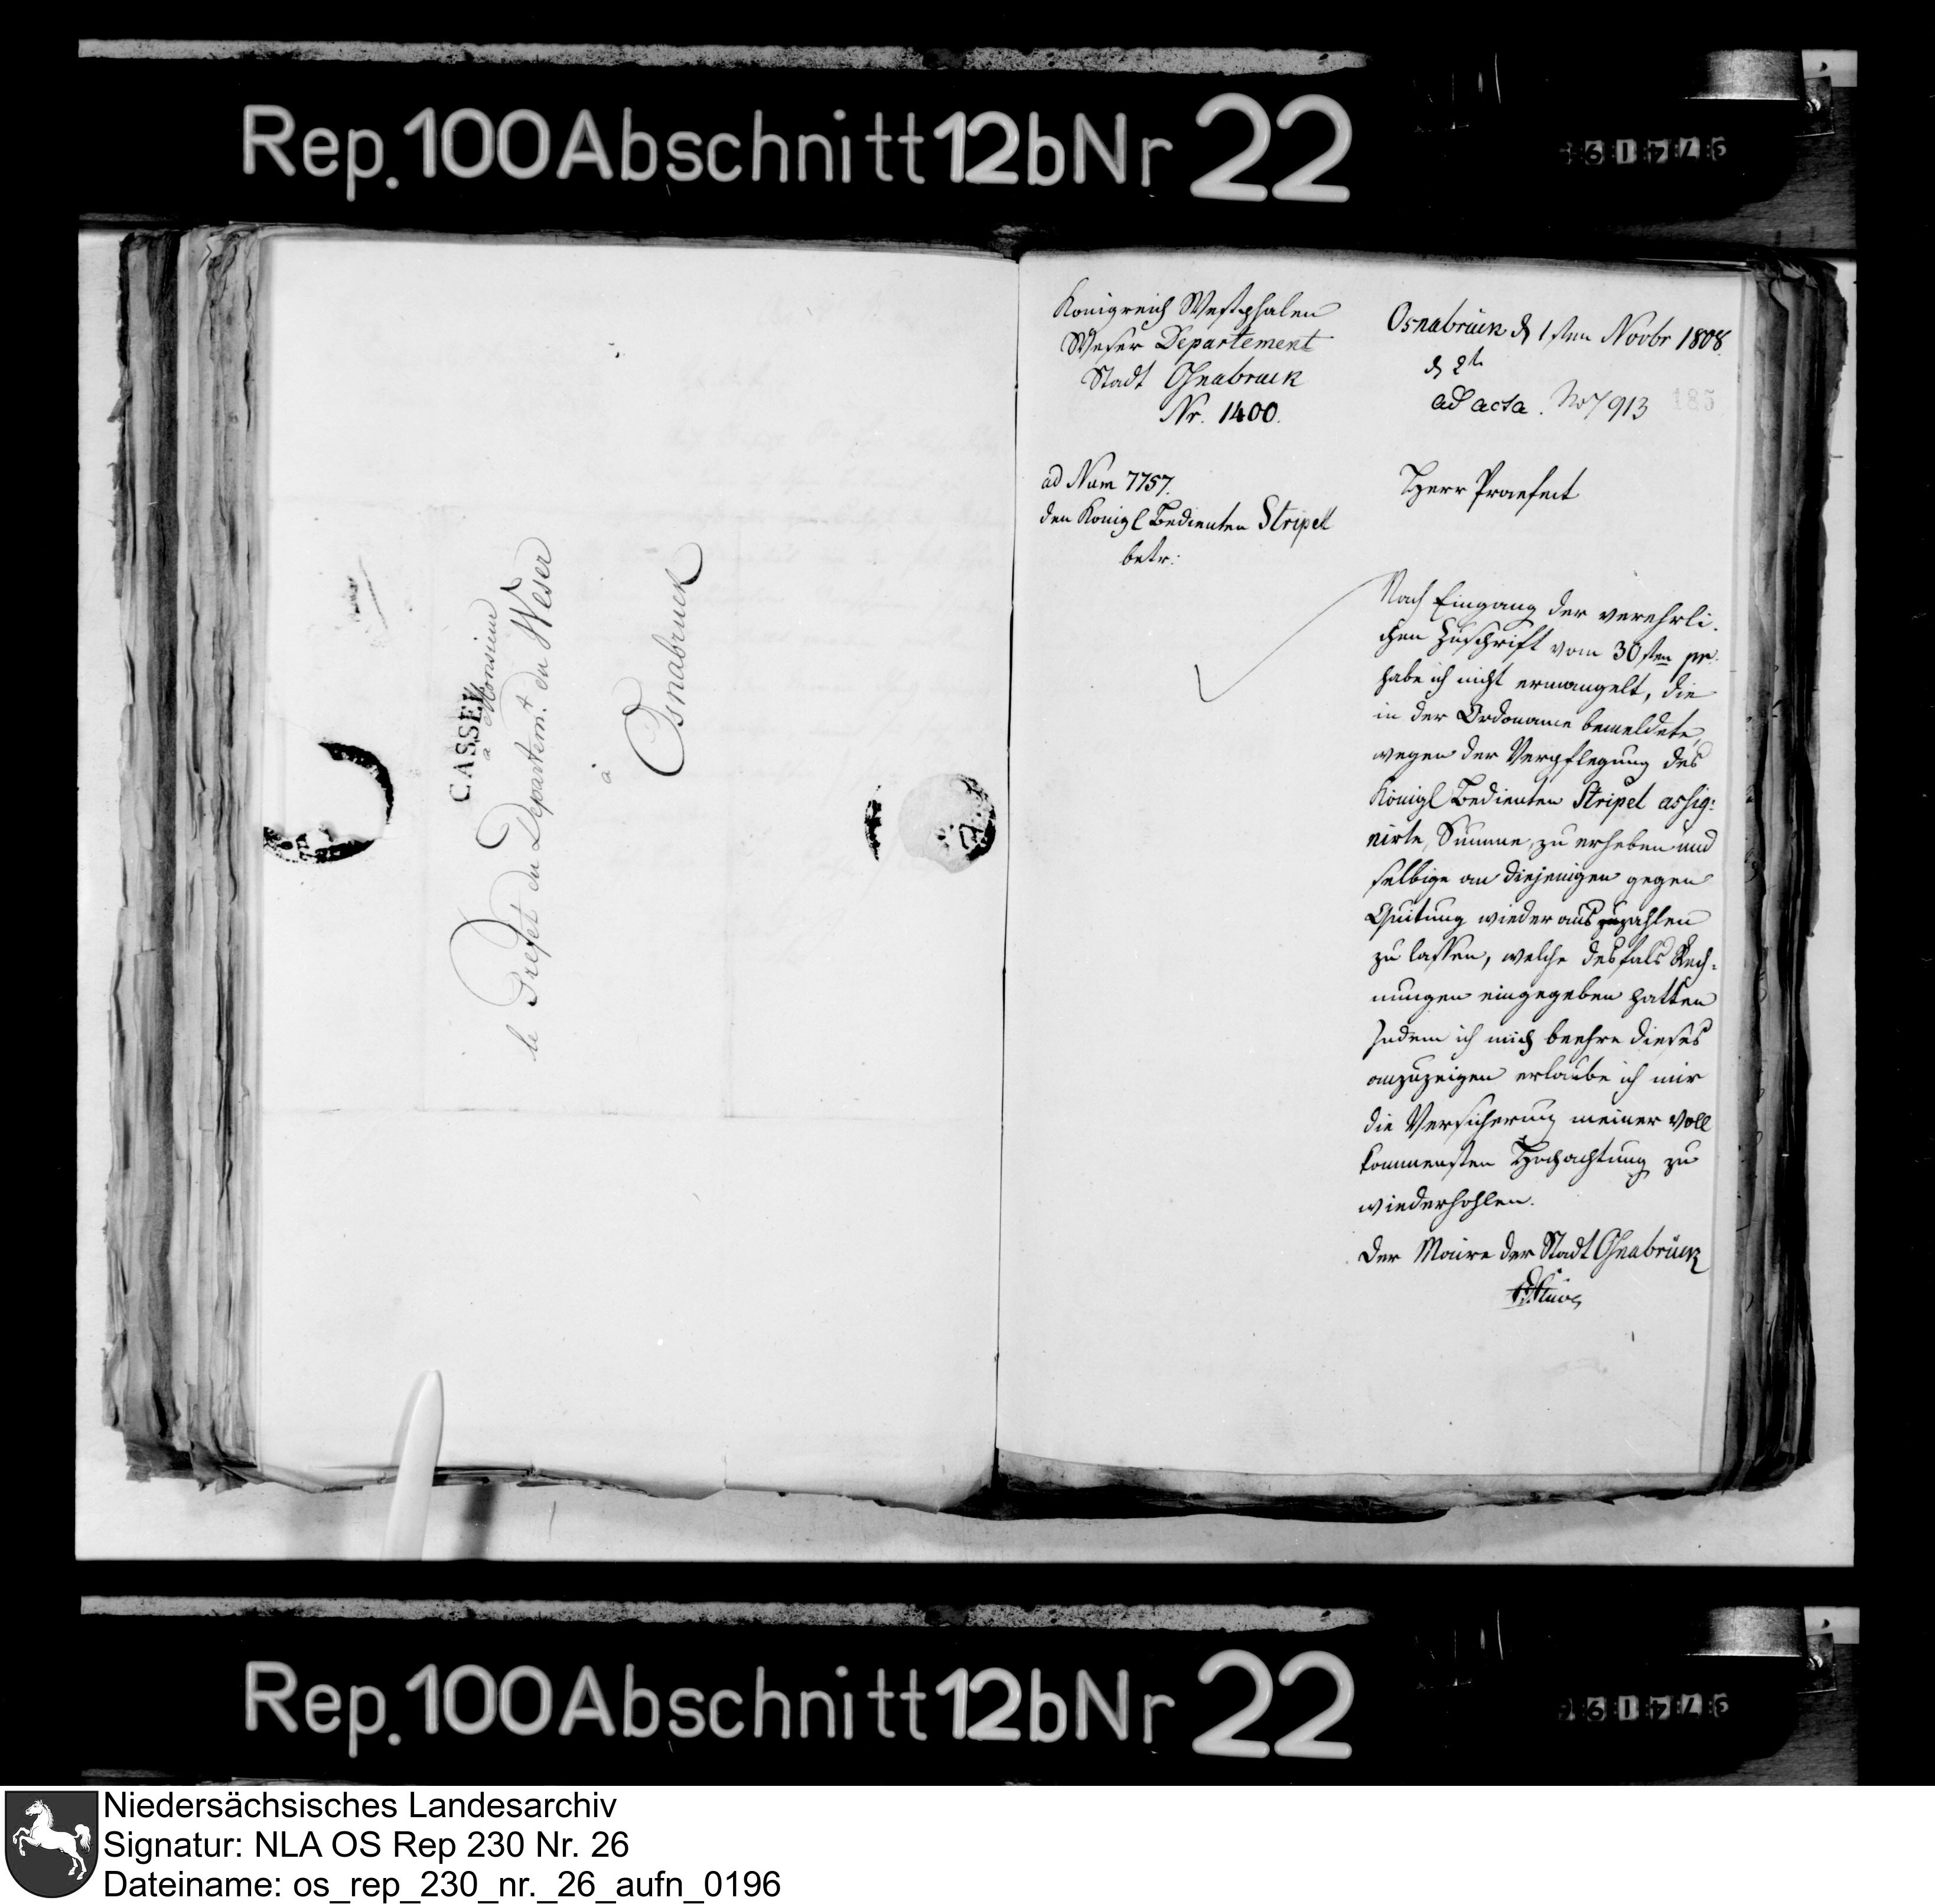 Rep. 100 Abschnitt 12b Nr 22
CASSEL
a Monsieur
le Prefet du Departemt. du Weser
à
Osnabruck
Königreich Westphalen
Weser Departement
Stadt Osnabruck
Nr. 1400.
ad Num 7757.
den Königl Bedienten Stripel
betr:
Osnabrück d 1sten Novbr 1808.
ad acta. No 7913
185
Herr Praefect
Nach Eingang der verehrli-
chen Zuschrift vom 30sten pr.
habe ich nicht ermangelt, die
in der Ordonance bemeldete,
wegen der Verpflegung des
Königl Bedienten Stripel assig-
nirte, Summe, zu erheben und
selbige an diejenigen gegen
Quitung wieder auszuzahlen
zu lassen, welche desfals Rech-
nungen eingegeben hatten
Indem ich mich beehre dieses
anzuzeigen erlaube ich mir
die Versicherung meiner Voll
kommensten Hochachtung zu
wiederhohlen.
Der Maire der Stadt Osnabrück
Stüve
Rep. 100 Abschnitt 12b Nr 22
Niedersächsisches Landesarchiv
Signatur: NLA OS Rep 230 Nr. 26
Dateiname: os_rep_230_nr._26_aufn_0196